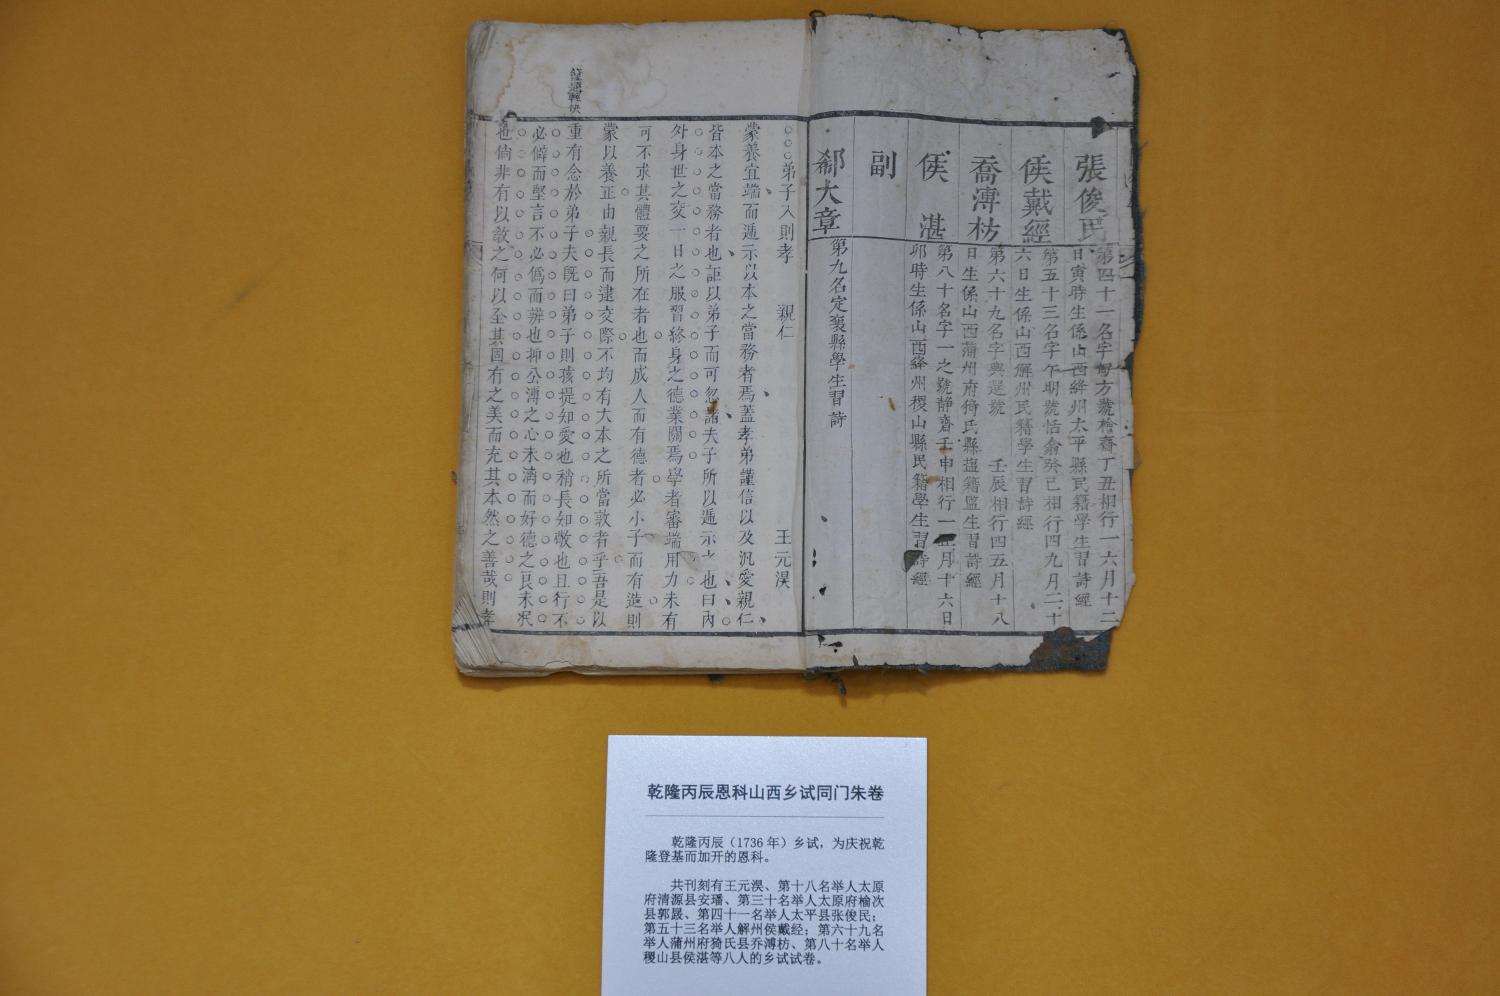 張俊民
第四十一名字旬方號檢齋丁丑相行一六月十二
日寅時生係山西絳州太平縣民籍學生習詩經
侯戴經
第五十三名字午明號恬翕癸已相行四九月二十
六日生係山西解州民籍學生習詩經
喬溥枋
第六十九名字典選號 壬辰相行四五月十八
日生係山西蒲州府猗氏縣塩籍監生習詩經
侯湛
第八十名字一之號静齋壬申相行一五月十六日
卯時生係山西絳州稷山縣民籍學生習詩經
副
郗大章
第九名定襄縣學生習詩
弟子入則孝 親仁 王元淏
蒙養宜端而遞示以本之當務者焉蓋孝弟謹信以及汎愛親仁
皆本之當務者也詎以弟子而可忽諸夫子所以遞示之也曰內
外身世之交一日之服習終身之德業關焉學者審端用力未有
可不求其體要之所在者也而成人而有德者必小子而有造則
蒙以養正由親長而逮交際不均有大本之所當敦者乎吾是以
重有念於弟子夫既曰弟子則孩提知愛也稍長知敬也且行不
必僻而堅言不必僞而辨也抑公溥之心未漓而好德之良未泯
也倘非有以教之何以全其固有之美而充其本然之善哉則孝
乾隆丙辰恩科山西乡试同门朱卷
乾隆丙辰（1736年）乡试，为庆祝乾
隆登基而加开的恩科。
共刊刻有王元淏、第十八名举人太原
府清源县安璠、第三十名举人太原府榆次
县郭晸、第四十一名举人太平县张俊民；
第五十三名举人解州侯戴经；第六十九名
举人蒲州府猗氏县乔溥枋、第八十名举人
稷山县侯湛等八人的乡试试卷。